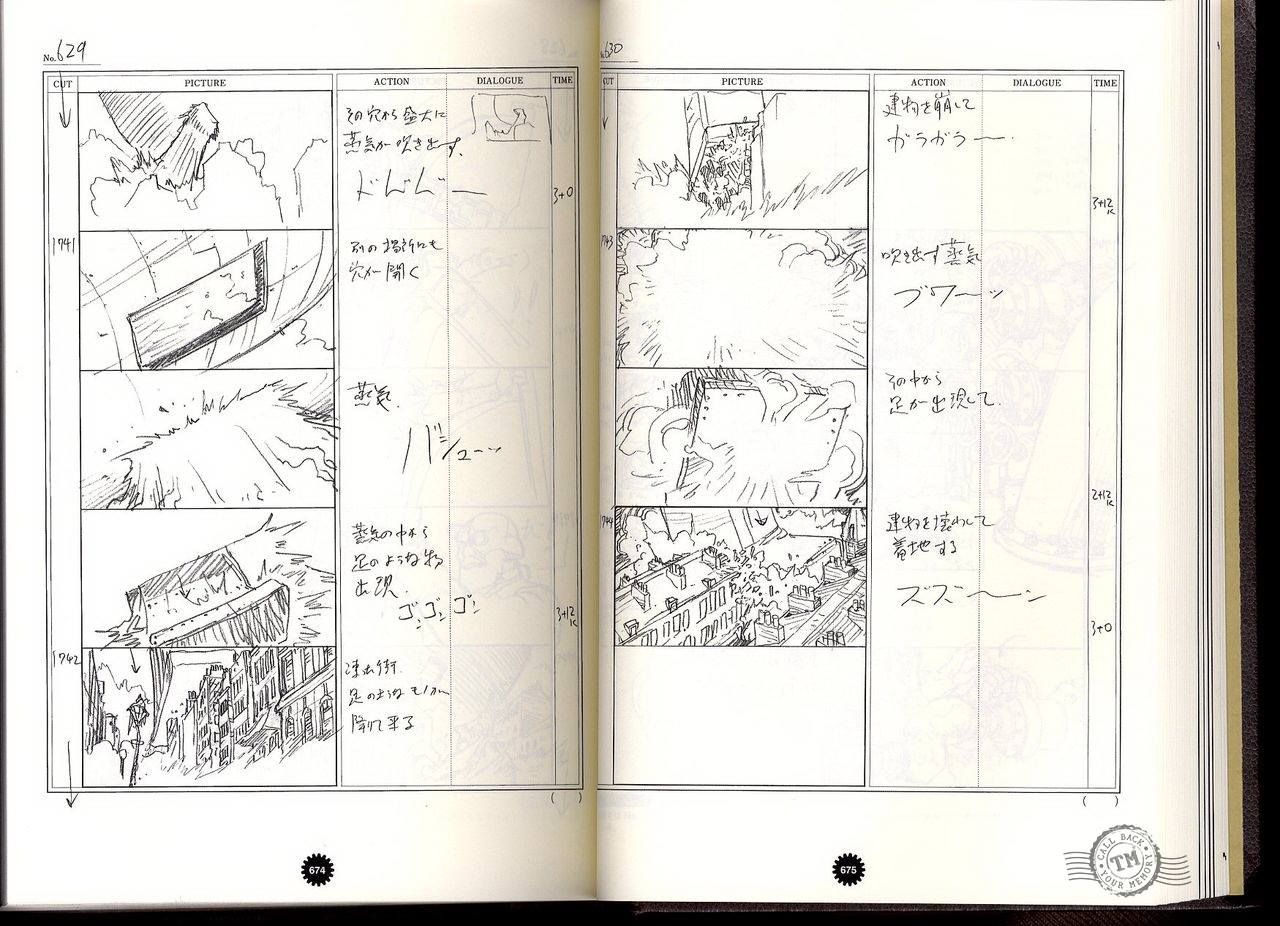 No. 629
CUT PICTURE ACTION DIALOGUE TIME
その穴から盛大に
蒸気が吹き出す。
ドドド―
3+0
1741
別の場所にも
穴が開く
蒸気.
バシューッ
蒸気の中から
足のような物
出現.
ゴンゴンゴン
3+12
K
1742
凍る街.
足のようなモノが
降りて来る
( )
674
630
PICTURE ACTION DIALOGUE TIME
建物を崩して
ガラガラ―.
3+12
K
1743
吹き出す蒸気
ブワーッ
その中から
足が出現して.
2+12
K
1744
建物を壊わして
着地する
ズズーン
3+0
( )
675
CALL BACK
TM
YOUR MEMORY